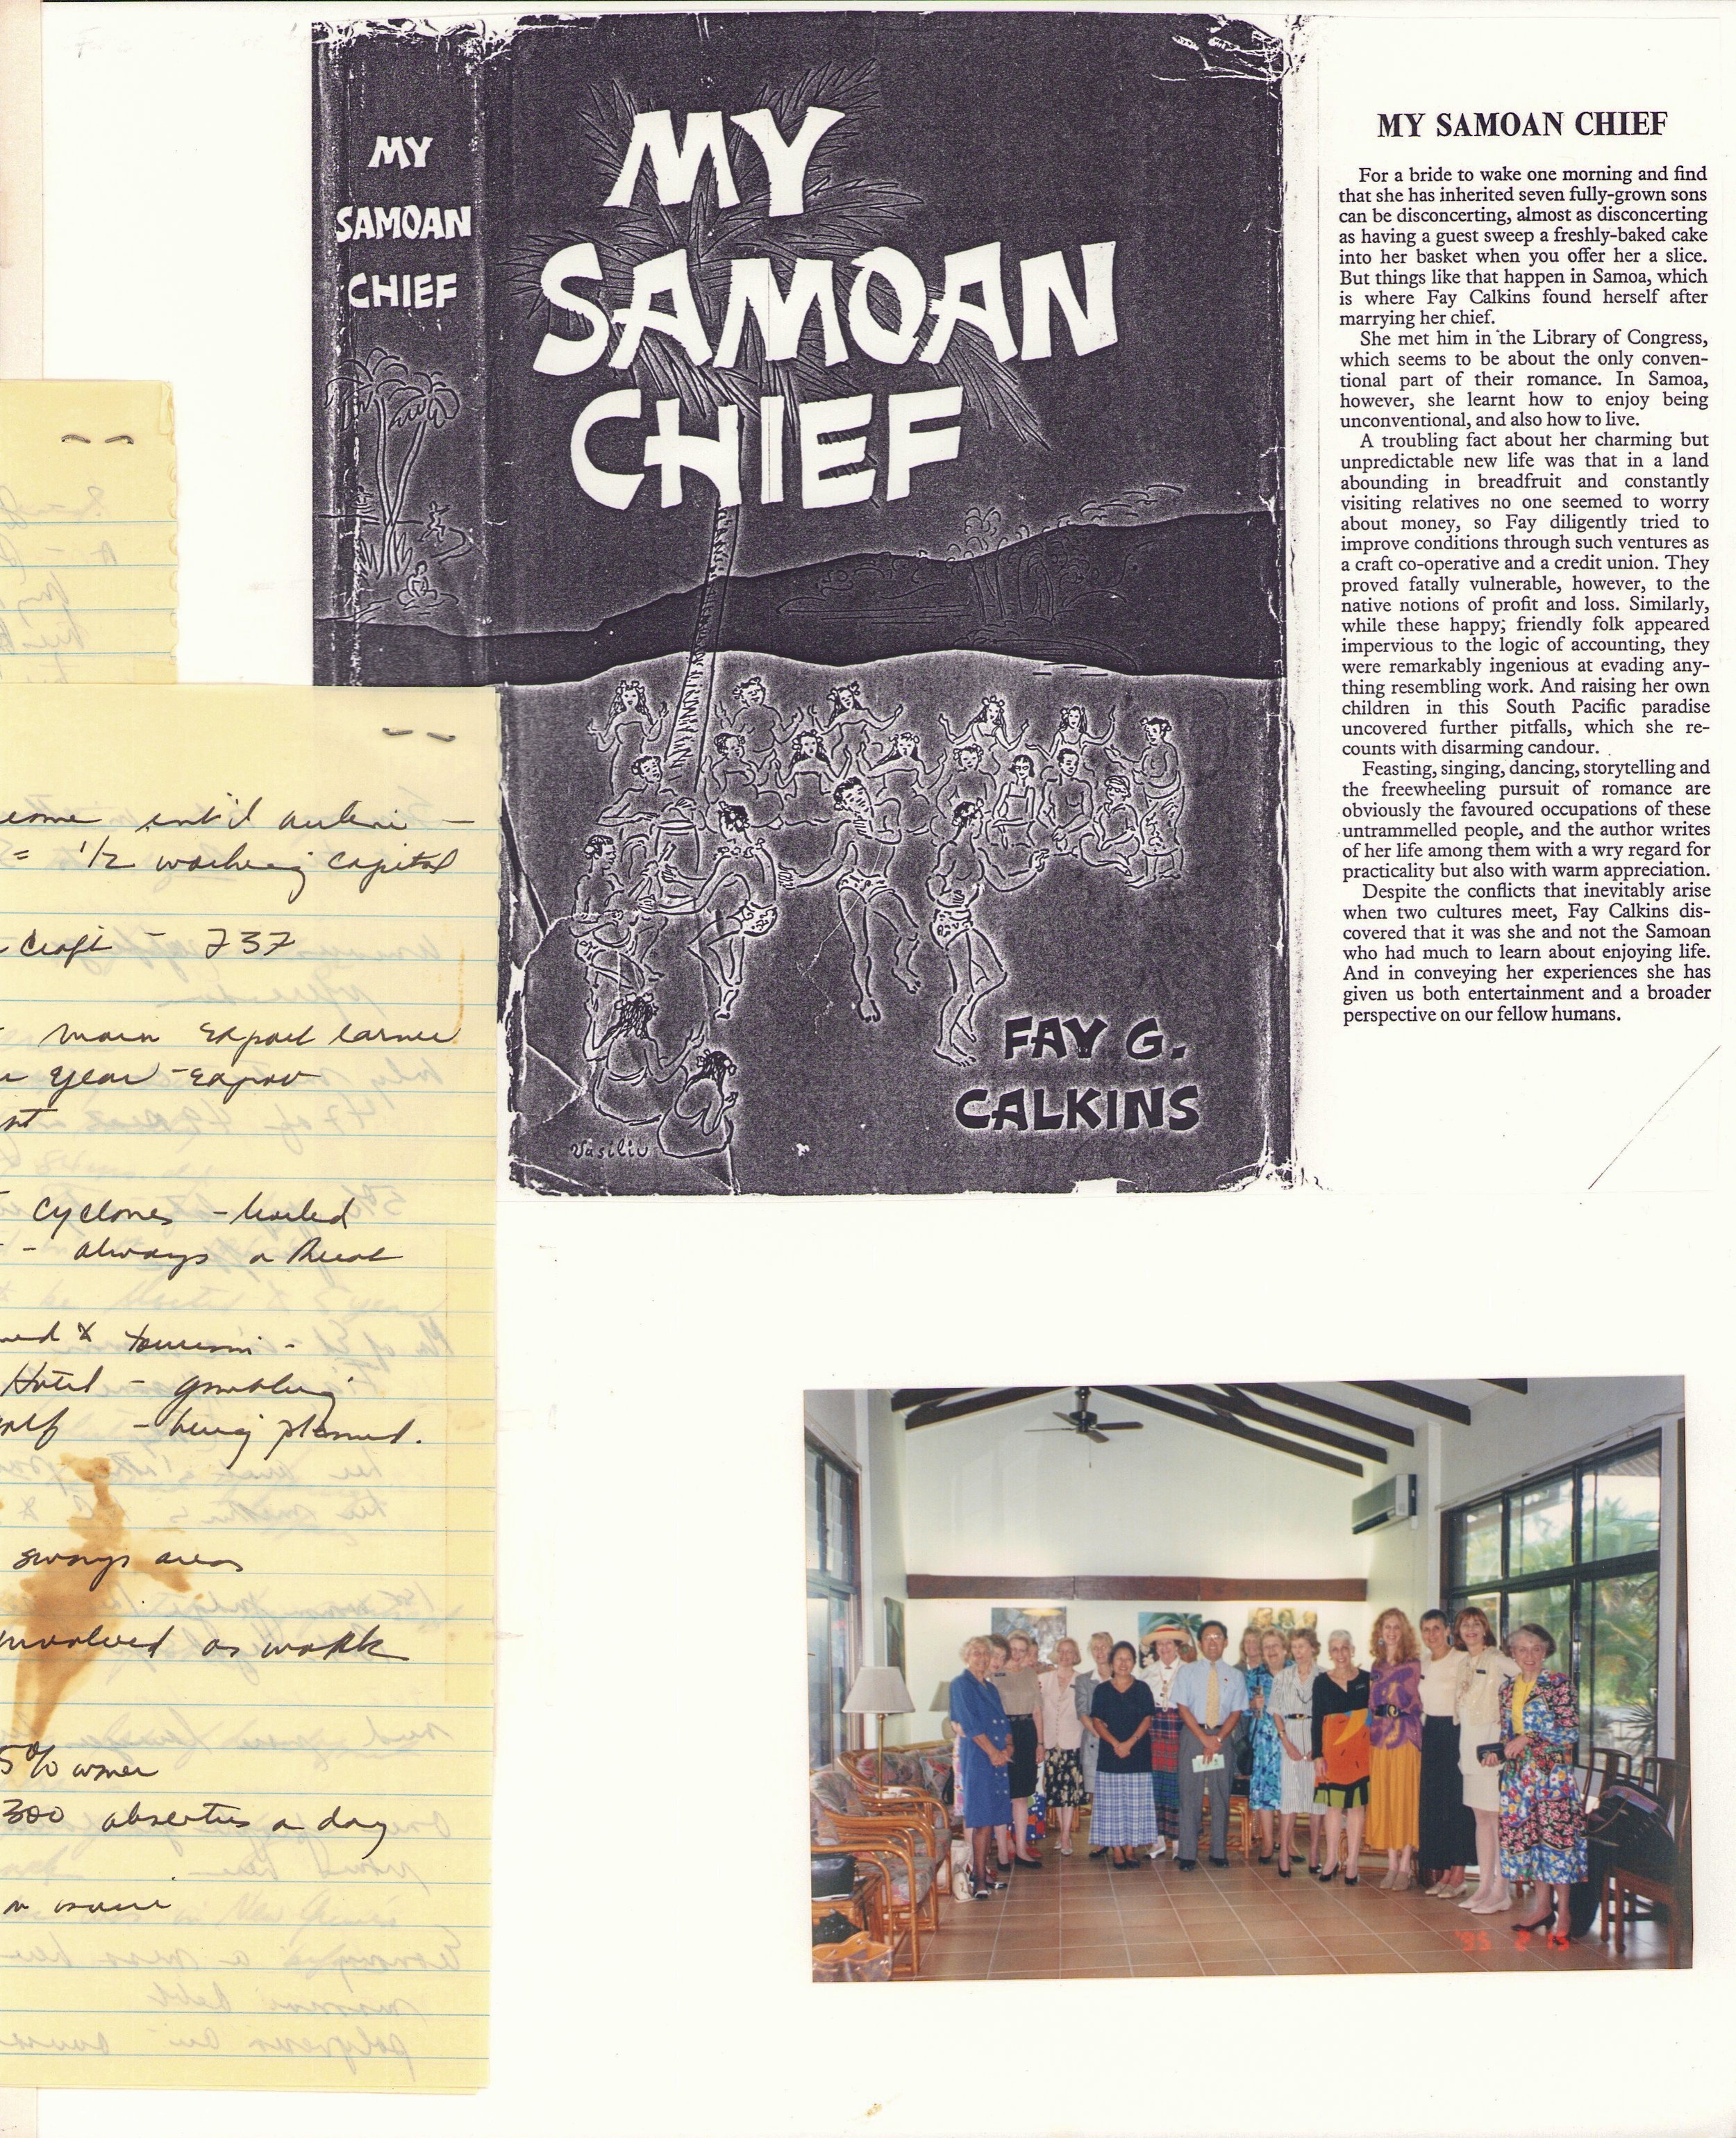 MY
SAMOAN
CHIEF
MY
SAMOAN
CHIEF
FAY G.
CALKINS
Vasiliu
MY SAMOAN CHIEF
For a bride to wake one morning and find
that she has inherited seven fully-grown sons
can be disconcerting, almost as disconcerting
as having a guest sweep a freshly-baked cake
into her basket when you offer her a slice.
But things like that happen in Samoa, which
is where Fay Calkins found herself after
marrying her chief.
She met him in the Library of Congress,
which seems to be about the only conven-
tional part of their romance. In Samoa,
however, she learnt how to enjoy being
unconventional, and also how to live.
A troubling fact about her charming but
unpredictable new life was that in a land
abounding in breadfruit and constantly
visiting relatives no one seemed to worry
about money, so Fay diligently tried to
improve conditions through such ventures as
a craft co-operative and a credit union. They
proved fatally vulnerable, however, to the
native notions of profit and loss. Similarly,
while these happy; friendly folk appeared
impervious to the logic of accounting, they
were remarkably ingenious at evading any-
thing resembling work. And raising her own
children in this South Pacific paradise
uncovered further pitfalls, which she re-
counts with disarming candour.
Feasting, singing, dancing, storytelling and
the freewheeling pursuit of romance are
obviously the favoured occupations of these
untrammelled people, and the author writes
of her life among them with a wry regard for
practicality but also with warm appreciation.
Despite the conflicts that inevitably arise
when two cultures meet, Fay Calkins dis-
covered that it was she and not the Samoan
who had much to learn about enjoying life.
And in conveying her experiences she has
given us both entertainment and a broader
perspective on our fellow humans.
int'l
= 1/2 working capital
craft - 737
main export earner
year -
cyclones -
- always a threat
tourism -
Hotel - gambling
- being planned.
areas
involved as work
5%
300 absentees a day
'95 2 15